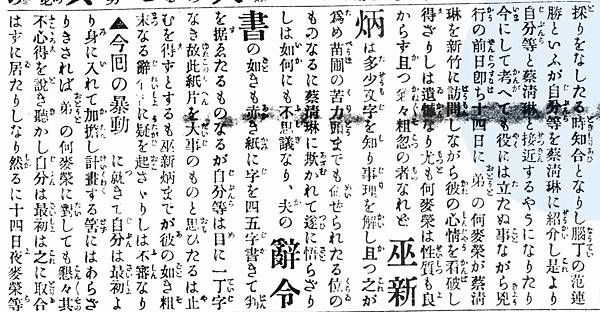 採りをなしたる時知合となりし腦丁の范連
勝といふが自分等を蔡清琳に紹介し是より
自分等と蔡清琳と接近するやうになりたり
今にして考へても役には立たぬ事ながら兇
行の前日卽ち十四日に、弟の何麥榮が蔡清
琳を新竹に訪問しながら彼の心情を看破し
得ざりしは遺憾なり尤も何麥榮は性質も良
からず且つ 粗忽の者なれど 巫新
炳は多少文字を知り事理を解し且つ之が
爲め苗圃の苦力頭までも任せられたる位の
ものなるに蔡清琳に欺かれて遂に悟らざり
しは如何にも不思議なり、夫の 辭令
書の如きも赤き紙に字を四五字書きて判
を据ゑたるものなるが自分等は目に一丁字
なき故此紙片を大事のものと思ひたるは止
むを得ずとするも巫新炳までが彼の如き粗
末なる辭令に疑を起さゞりしは不審なり
▲今回の暴動 に就きて自分は最初よ
り身に入れて加擔し計畫する等にはあらざ
りきされば 弟の何麥榮に對しても懇々其
不心得を説き聴かし自分は最初は之に取合
はずに居たりしなり然るに十四日夜麥榮等